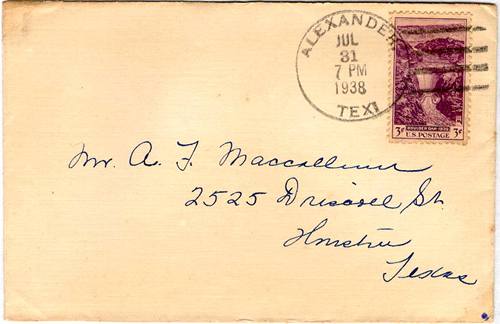 ALEXANDER
JUL
31
7 PM
1938
TEX
BOULDER DAM 1935
3¢ 3¢
U.S. POSTAGE
Mr. A. F. Maccallum
2525 Driscoll St.
Houston
Texas